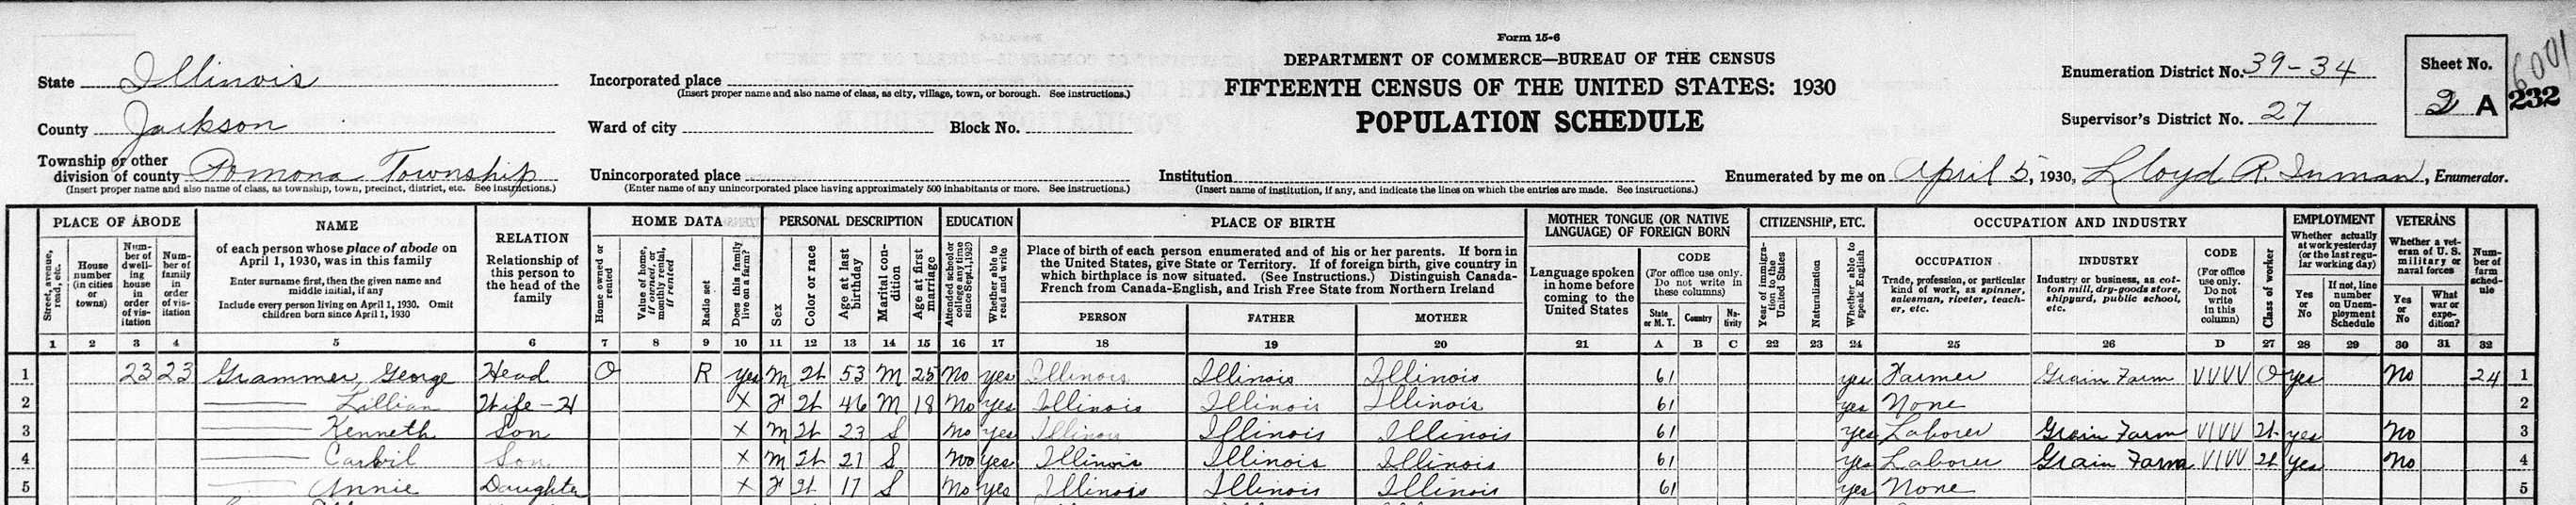 Form 15-6
DEPARTMENT OF COMMERCE—BUREAU OF THE CENSUS
FIFTEENTH CENSUS OF THE UNITED STATES: 1930
POPULATION SCHEDULE
State Illinois
County Jackson
Township or other division of county Pomona Township
(Insert proper name and also name of class, as township, town, precinct, district, etc. See instructions.)
Incorporated place
(Insert proper name and also name of class, as city, village, town, or borough. See instructions.)
Ward of city Block No.
Unincorporated place
(Enter name of any unincorporated place having approximately 500 inhabitants or more. See instructions.)
Institution
(Insert name of institution, if any, and indicate the lines on which the entries are made. See instructions.)
Enumeration District No. 39-34
Supervisor's District No. 27
Enumerated by me on April 5, 1930, Lloyd R. Inman, Enumerator.
Sheet No.
2 A
6001
232
PLACE OF ABODE
Street, avenue, road, etc.
House number (in cities or towns)
Number of dwelling house in order of visitation
Number of family in order of visitation
NAME
of each person whose place of abode on April 1, 1930, was in this family
Enter surname first, then the given name and middle initial, if any
Include every person living on April 1, 1930. Omit children born since April 1, 1930
RELATION
Relationship of this person to the head of the family
HOME DATA
Home owned or rented
Value of home, if owned, or monthly rental, if rented
Radio set
Does this family live on a farm?
PERSONAL DESCRIPTION
Sex
Color or race
Age at last birthday
Marital condition
Age at first marriage
EDUCATION
Attended school or college any time since Sept. 1, 1929
Whether able to read and write
PLACE OF BIRTH
Place of birth of each person enumerated and of his or her parents. If born in the United States, give State or Territory. If of foreign birth, give country in which birthplace is now situated. (See Instructions.) Distinguish Canada-French from Canada-English, and Irish Free State from Northern Ireland
PERSON FATHER MOTHER
MOTHER TONGUE (OR NATIVE LANGUAGE) OF FOREIGN BORN
Language spoken in home before coming to the United States
CODE
(For office use only. Do not write in these columns)
State or M. T. Country Nativity
CITIZENSHIP, ETC.
Year of immigration to the United States
Naturalization
Whether able to speak English
OCCUPATION AND INDUSTRY
OCCUPATION
Trade, profession, or particular kind of work, as spinner, salesman, riveter, teacher, etc.
INDUSTRY
Industry or business, as cotton mill, dry-goods store, shipyard, public school, etc.
CODE
(For office use only. Do not write in this column)
Class of worker
EMPLOYMENT
Whether actually at work yesterday (or the last regular working day)
Yes or No
If not, line number on Unemployment Schedule
VETERANS
Whether a veteran of U. S. military or naval forces
Yes or No
What war or expedition?
Number of farm schedule
1 2 3 4 5 6 7 8 9 10 11 12 13 14 15 16 17 18 19 20 21 A B C 22 23 24 25 26 D 27 28 29 30 31 32
1 23 23 Grammer, George Head O R yes M W 53 M 25 No yes Illinois Illinois Illinois 61 yes Farmer Grain Farm VVVV O yes No 24 1
2 Lillian Wife-H X F W 46 M 18 No yes Illinois Illinois Illinois 61 yes None 2
3 Kenneth Son X M W 23 S No yes Illinois Illinois Illinois 61 yes Laborer Grain Farm VIVV W yes No 3
4 Son X M W 21 S No yes Illinois Illinois Illinois 61 yes Laborer Grain Farm VIVV W yes No 4
5 Annie Daughter X F W 17 S No yes Illinois Illinois Illinois 61 yes None 5